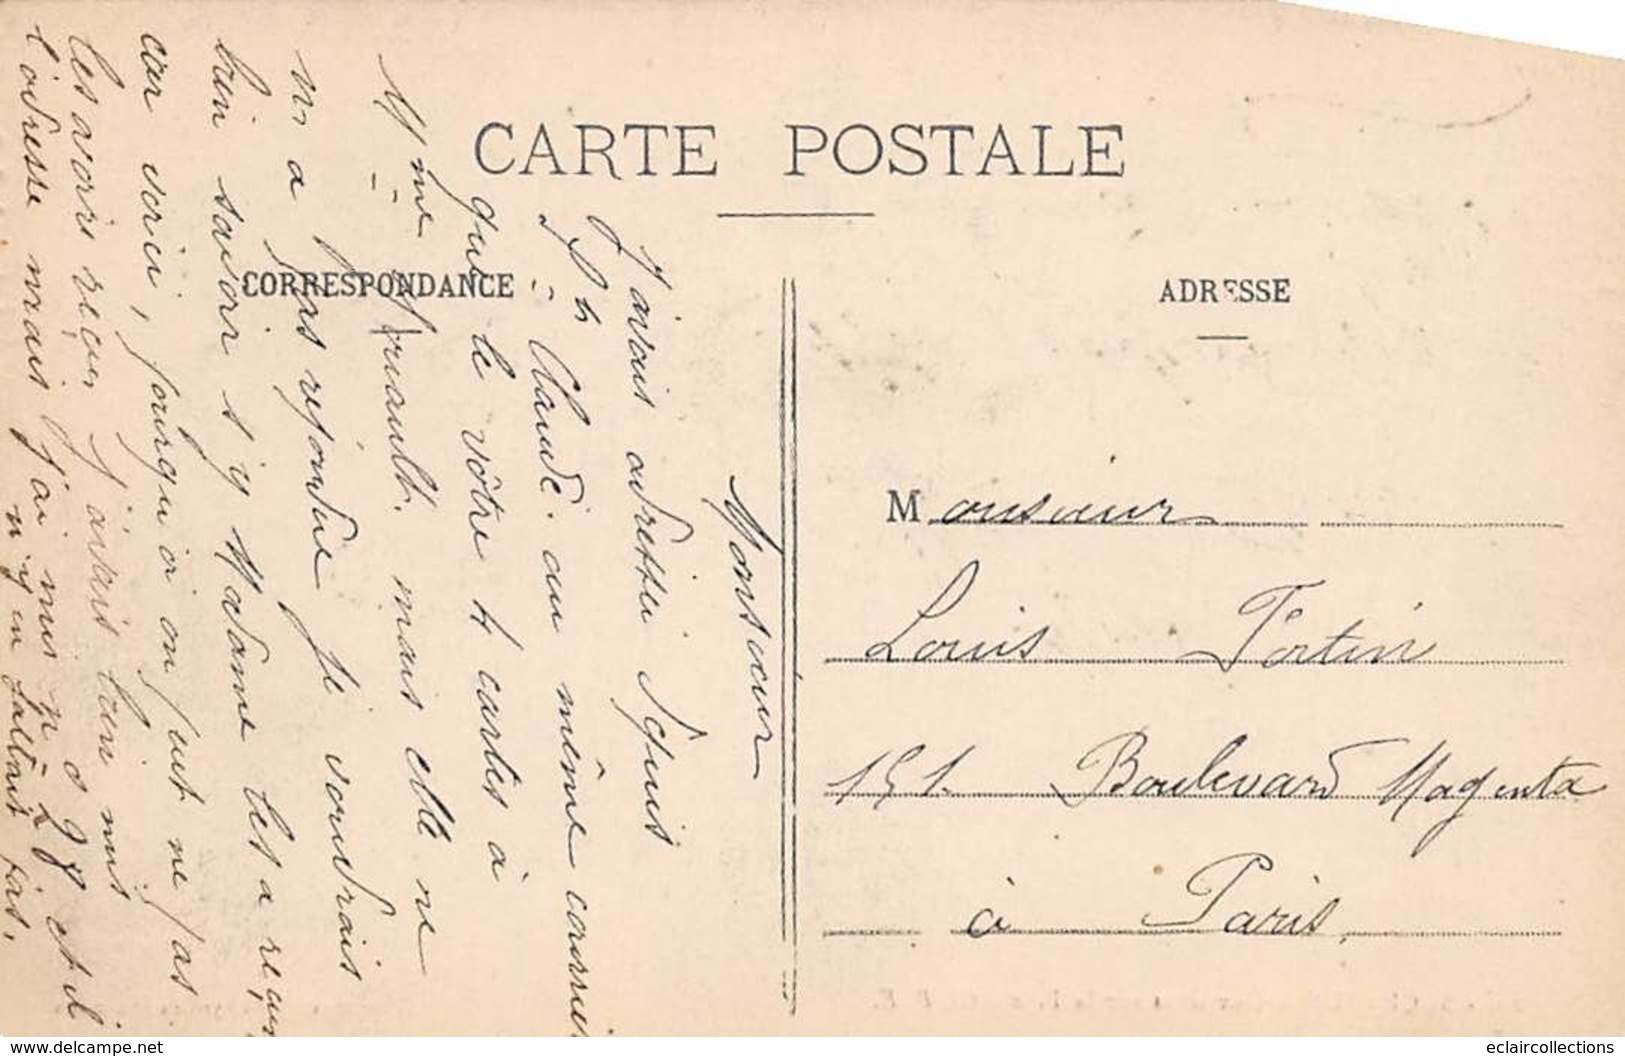 CARTE POSTALE
CORRESPONDANCE
ADRESSE
Monsieur
Louis Fortin
151. Boulevard Magenta
à Paris.
Monsieur
J'avais adressé depuis
St Claude. au même courrier
que le vôtre 4 cartes à
Mme mais elle ne
m'a pas répondue je voudrais
bien savoir si Madame les a reçues
car voici, pourquoi on peut ne pas
les avoirs reçus j'avais bien mis
l'adresse mais j'ai mis nº 28 et il
n'y en fallait pas.
www.delcampe.net
eclaircollections